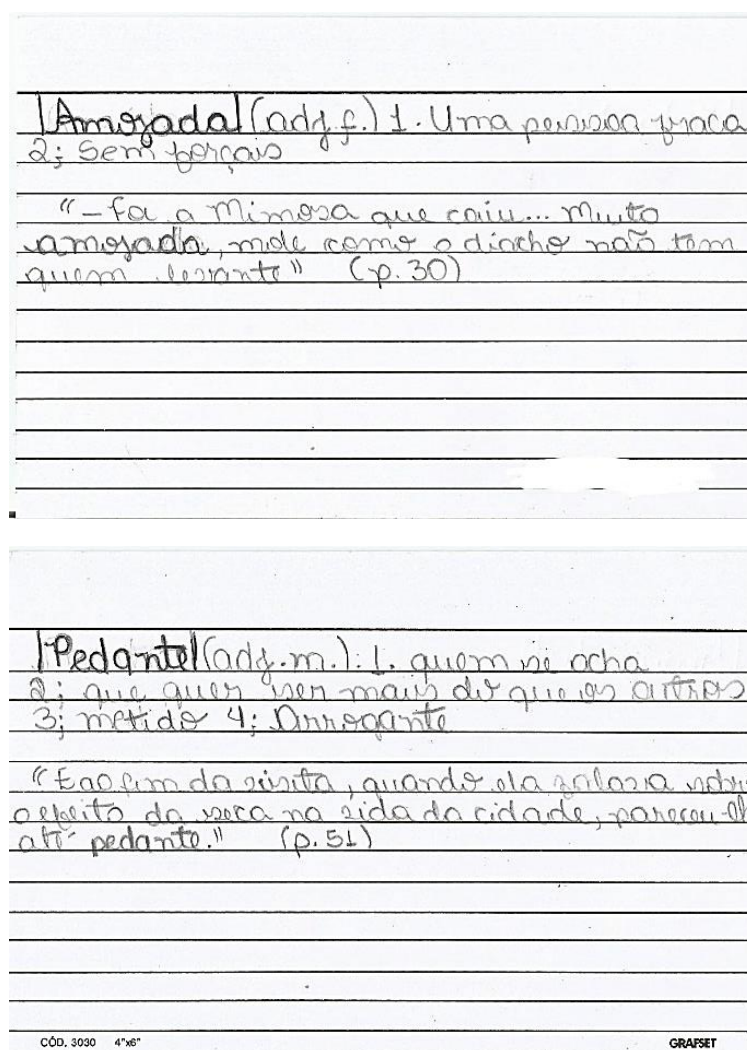 |Amojada| (adj.f.) 1. Uma pessoa fraca
2; Sem forçais
"- Foi a Mimosa que caiu... Muito
amojada, mole como o diacho não tem
quem levante" (p. 30)
|Pedante| (adj.m.): 1. quem se acha
2; que quer ser mais do que os outros
3; metido 4; Arrogante
"E ao fim da visita, quando ela falava sobre
o efeito da seca na vida da cidade, pareceu-
até pedante." (p. 51)
CÓD. 3030 4"x6" GRAFSET